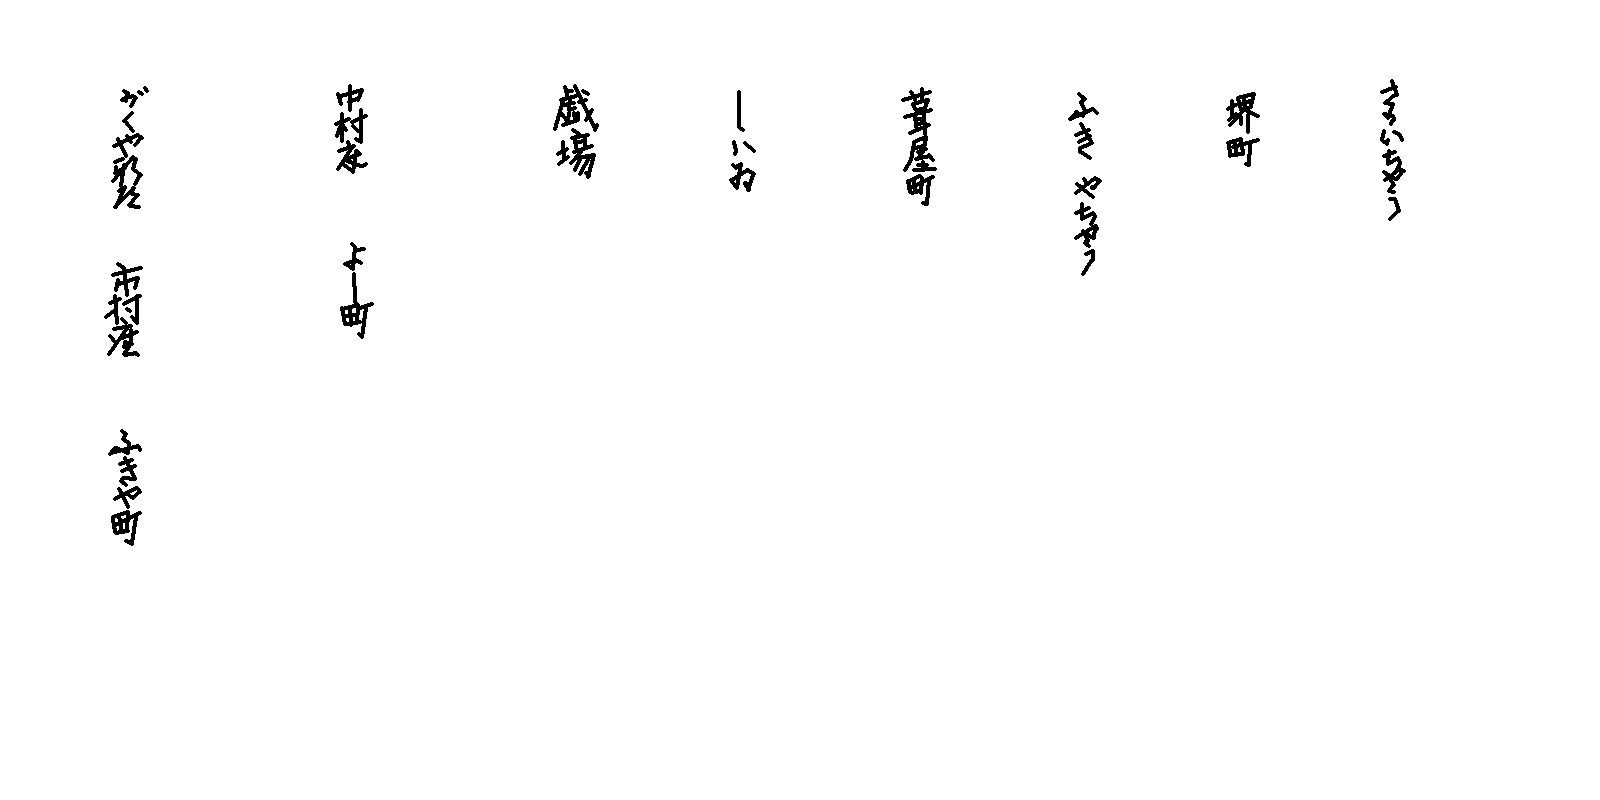 さかいちやう
堺町
ふきやちやう
葺屋町
しハゐ
戯場
中村座 よし町
がくや新道 市村座 ふきや町